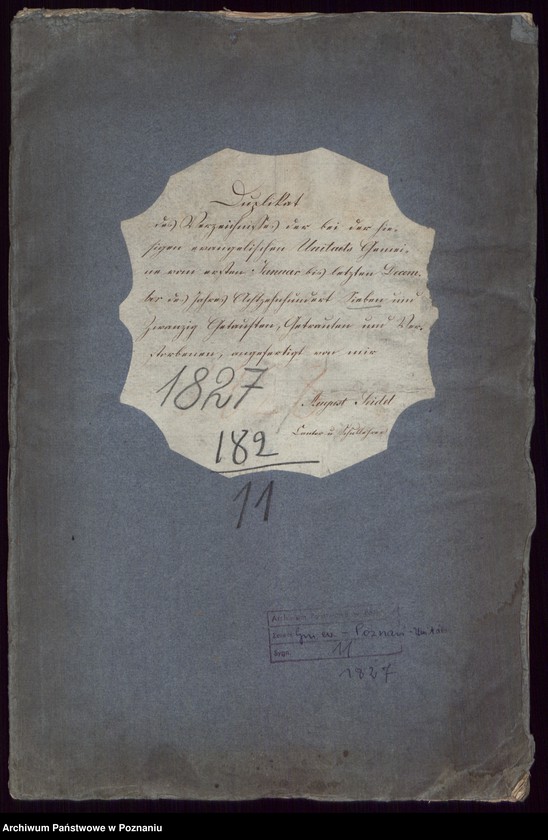 Duplikat
des Verzeichnisses der bei der hie-
sigen evangelischen Unitaets Gemei-
ne vom ersten Januar bis letzten Decem-
ber des Jahres Achtzehnhundert Sieben und
zwanzig Getauften, Getrauten und Ver-
storbenen, angefertigt von mir
1827
August Seidel
Cantor u Schullehrer
182
11
Archiwum
Gm. ew. - Poznań - Unitais
Sygn. 11
1827
Archiwum Państwowe w Poznaniu